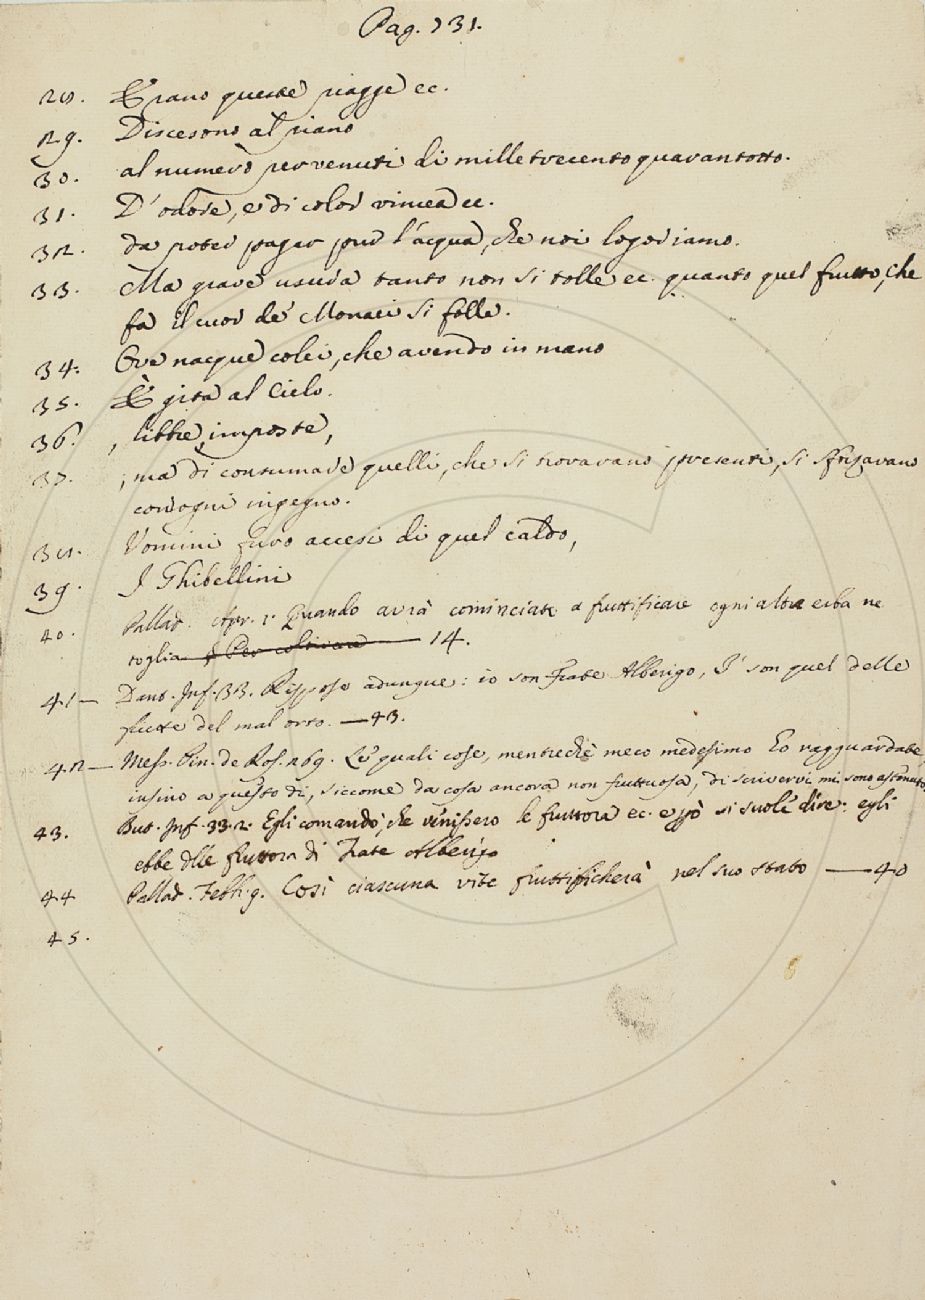 Pag. 731.
28. Erano queste piagge ec.
29. Discesono al piano
30. al numero pervenuti di milletrecentoquarantotto.
31. D'odore, e di color vincea ec.
32. da poter pagar pur l'acqua, che noi logoriamo.
33. Ma grave usura tanto non si tolle ec. quanto quel frutto, che
fa il cuor de' Monaci si folle.
34. Ove nacque colei, che avendo in mano
35. È gita al Cielo.
36. , libbre imposte,
37. ; ma di consumare quelli, che si trovavano presenti, si sfrizavano
con ogni ingegno.
38. Uomini furo accesi di quel caldo,
39. I Ghibellini
40. Pallad. Apr. 1. Quando avrà cominciate a fruttificare ogni altra erba ne
toglia 14.
41 — Dant. Inf. 33. Rispose adunque: io son Frate Alberigo, I' son quel delle
frutte del mal orto. — 43.
42 — Mess. Cin. de Ros. 269. Le quali cose, mentrechè meco medesimo Eo ragguardate
insino a questo di, siccome da cosa ancora non fruttuosa, di scrivervi mi sono astenuto
43. But. Inf. 33. 2. Egli comandò, che venissero le fruttora ec. e però si suole dire: egli
ebbe delle fruttora di Frate Alberigo
44 Pallad. Febb. 9. Così ciascuna vite fruttificherà nel suo stato — 40
45.